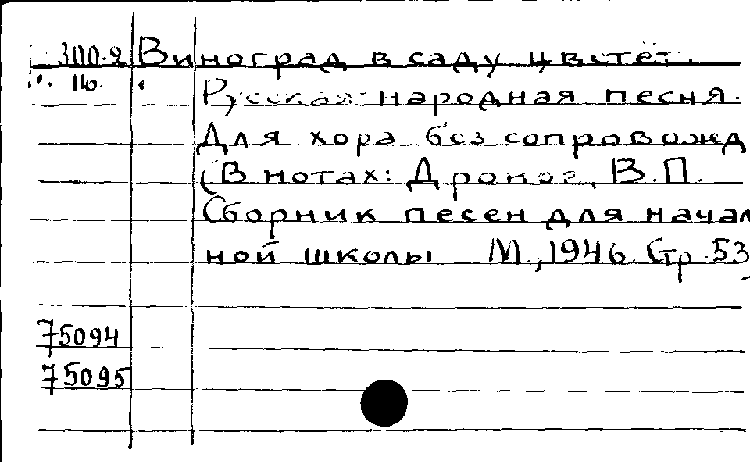 300.2 Виноград в саду цвѣтёт.
116.
Русская народная песня.
Для хора без сопровожд
(В нотах: В.П.
Сборник песен для начал
ной школы М., 1946 Стр. 53
75094
75095